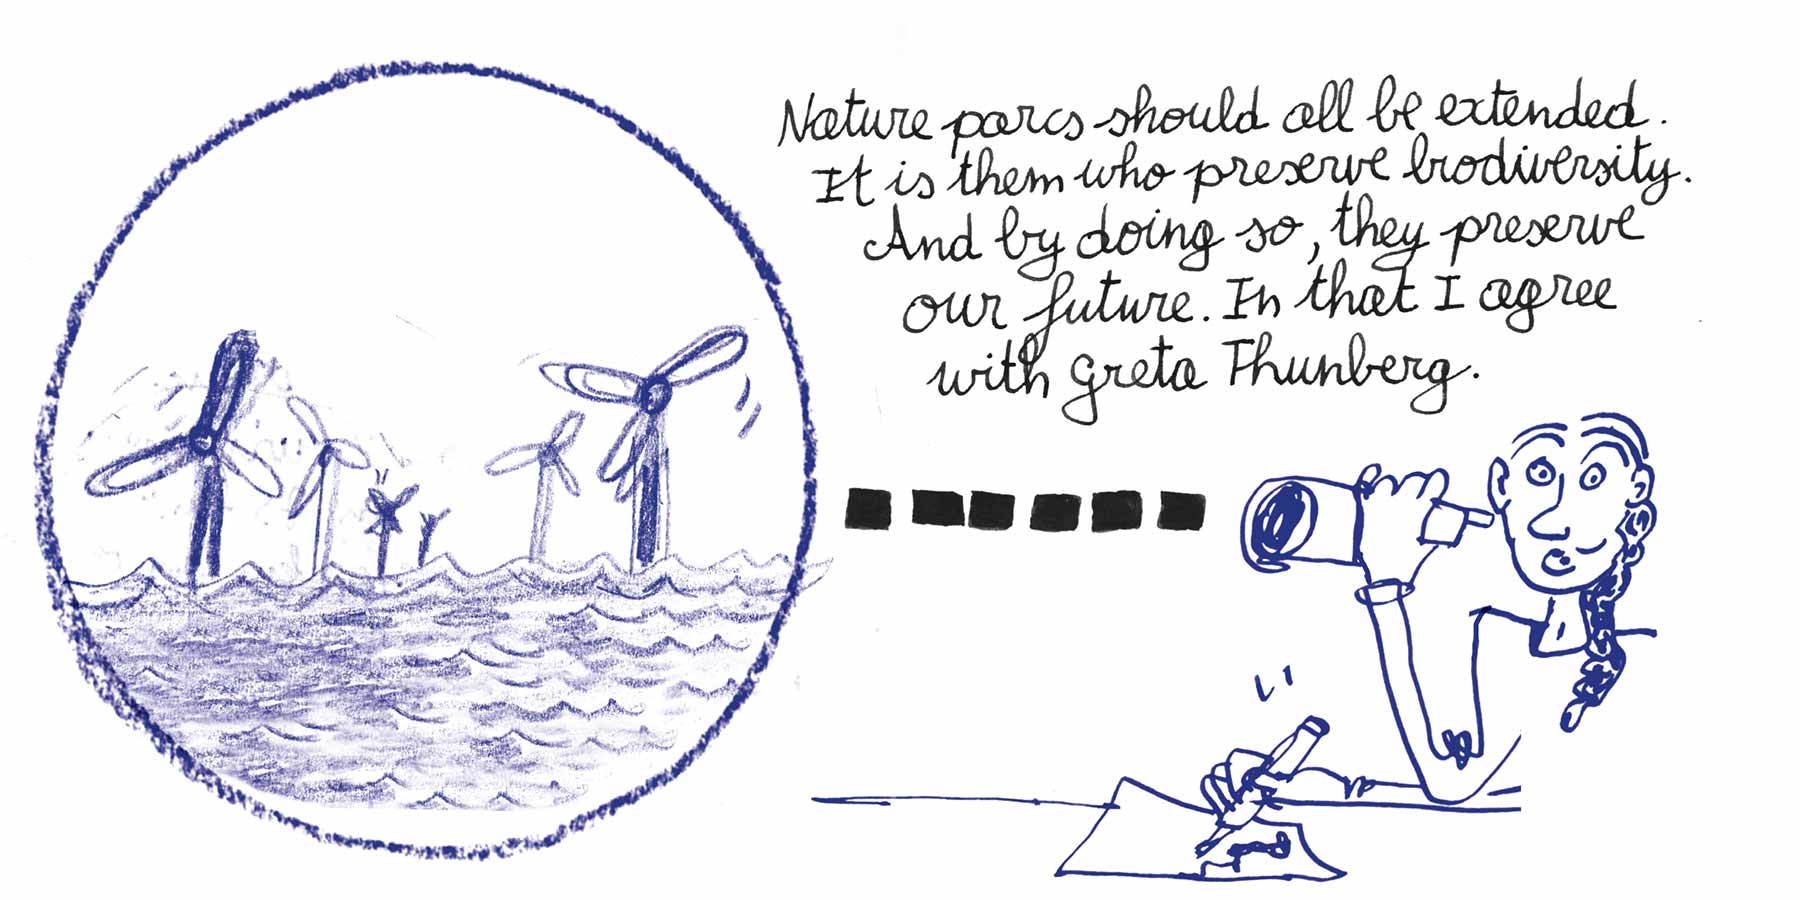 Nature parcs should all be extended.
It is them who preserve biodiversity.
And by doing so, they preserve
our future. In that I agree
with Greta Thunberg.